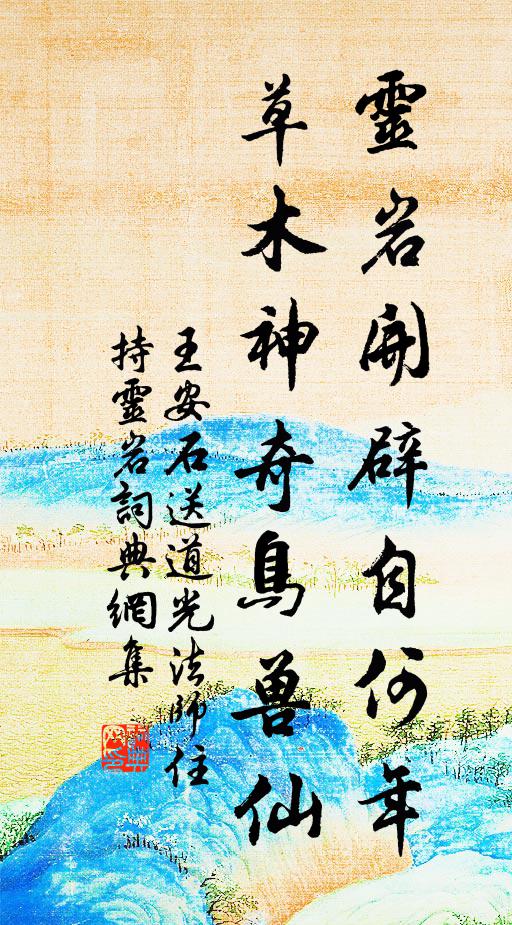 靈岩開辟自何年
草木神奇鳥兽仙
王安石送道光法師住
持靈岩詞典網集